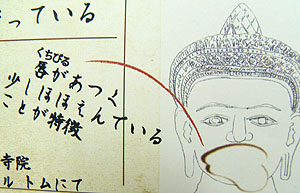 っている
くちびる
唇があつく
少しほほえんでいる
ことが特徴
寺院
ルトムにて